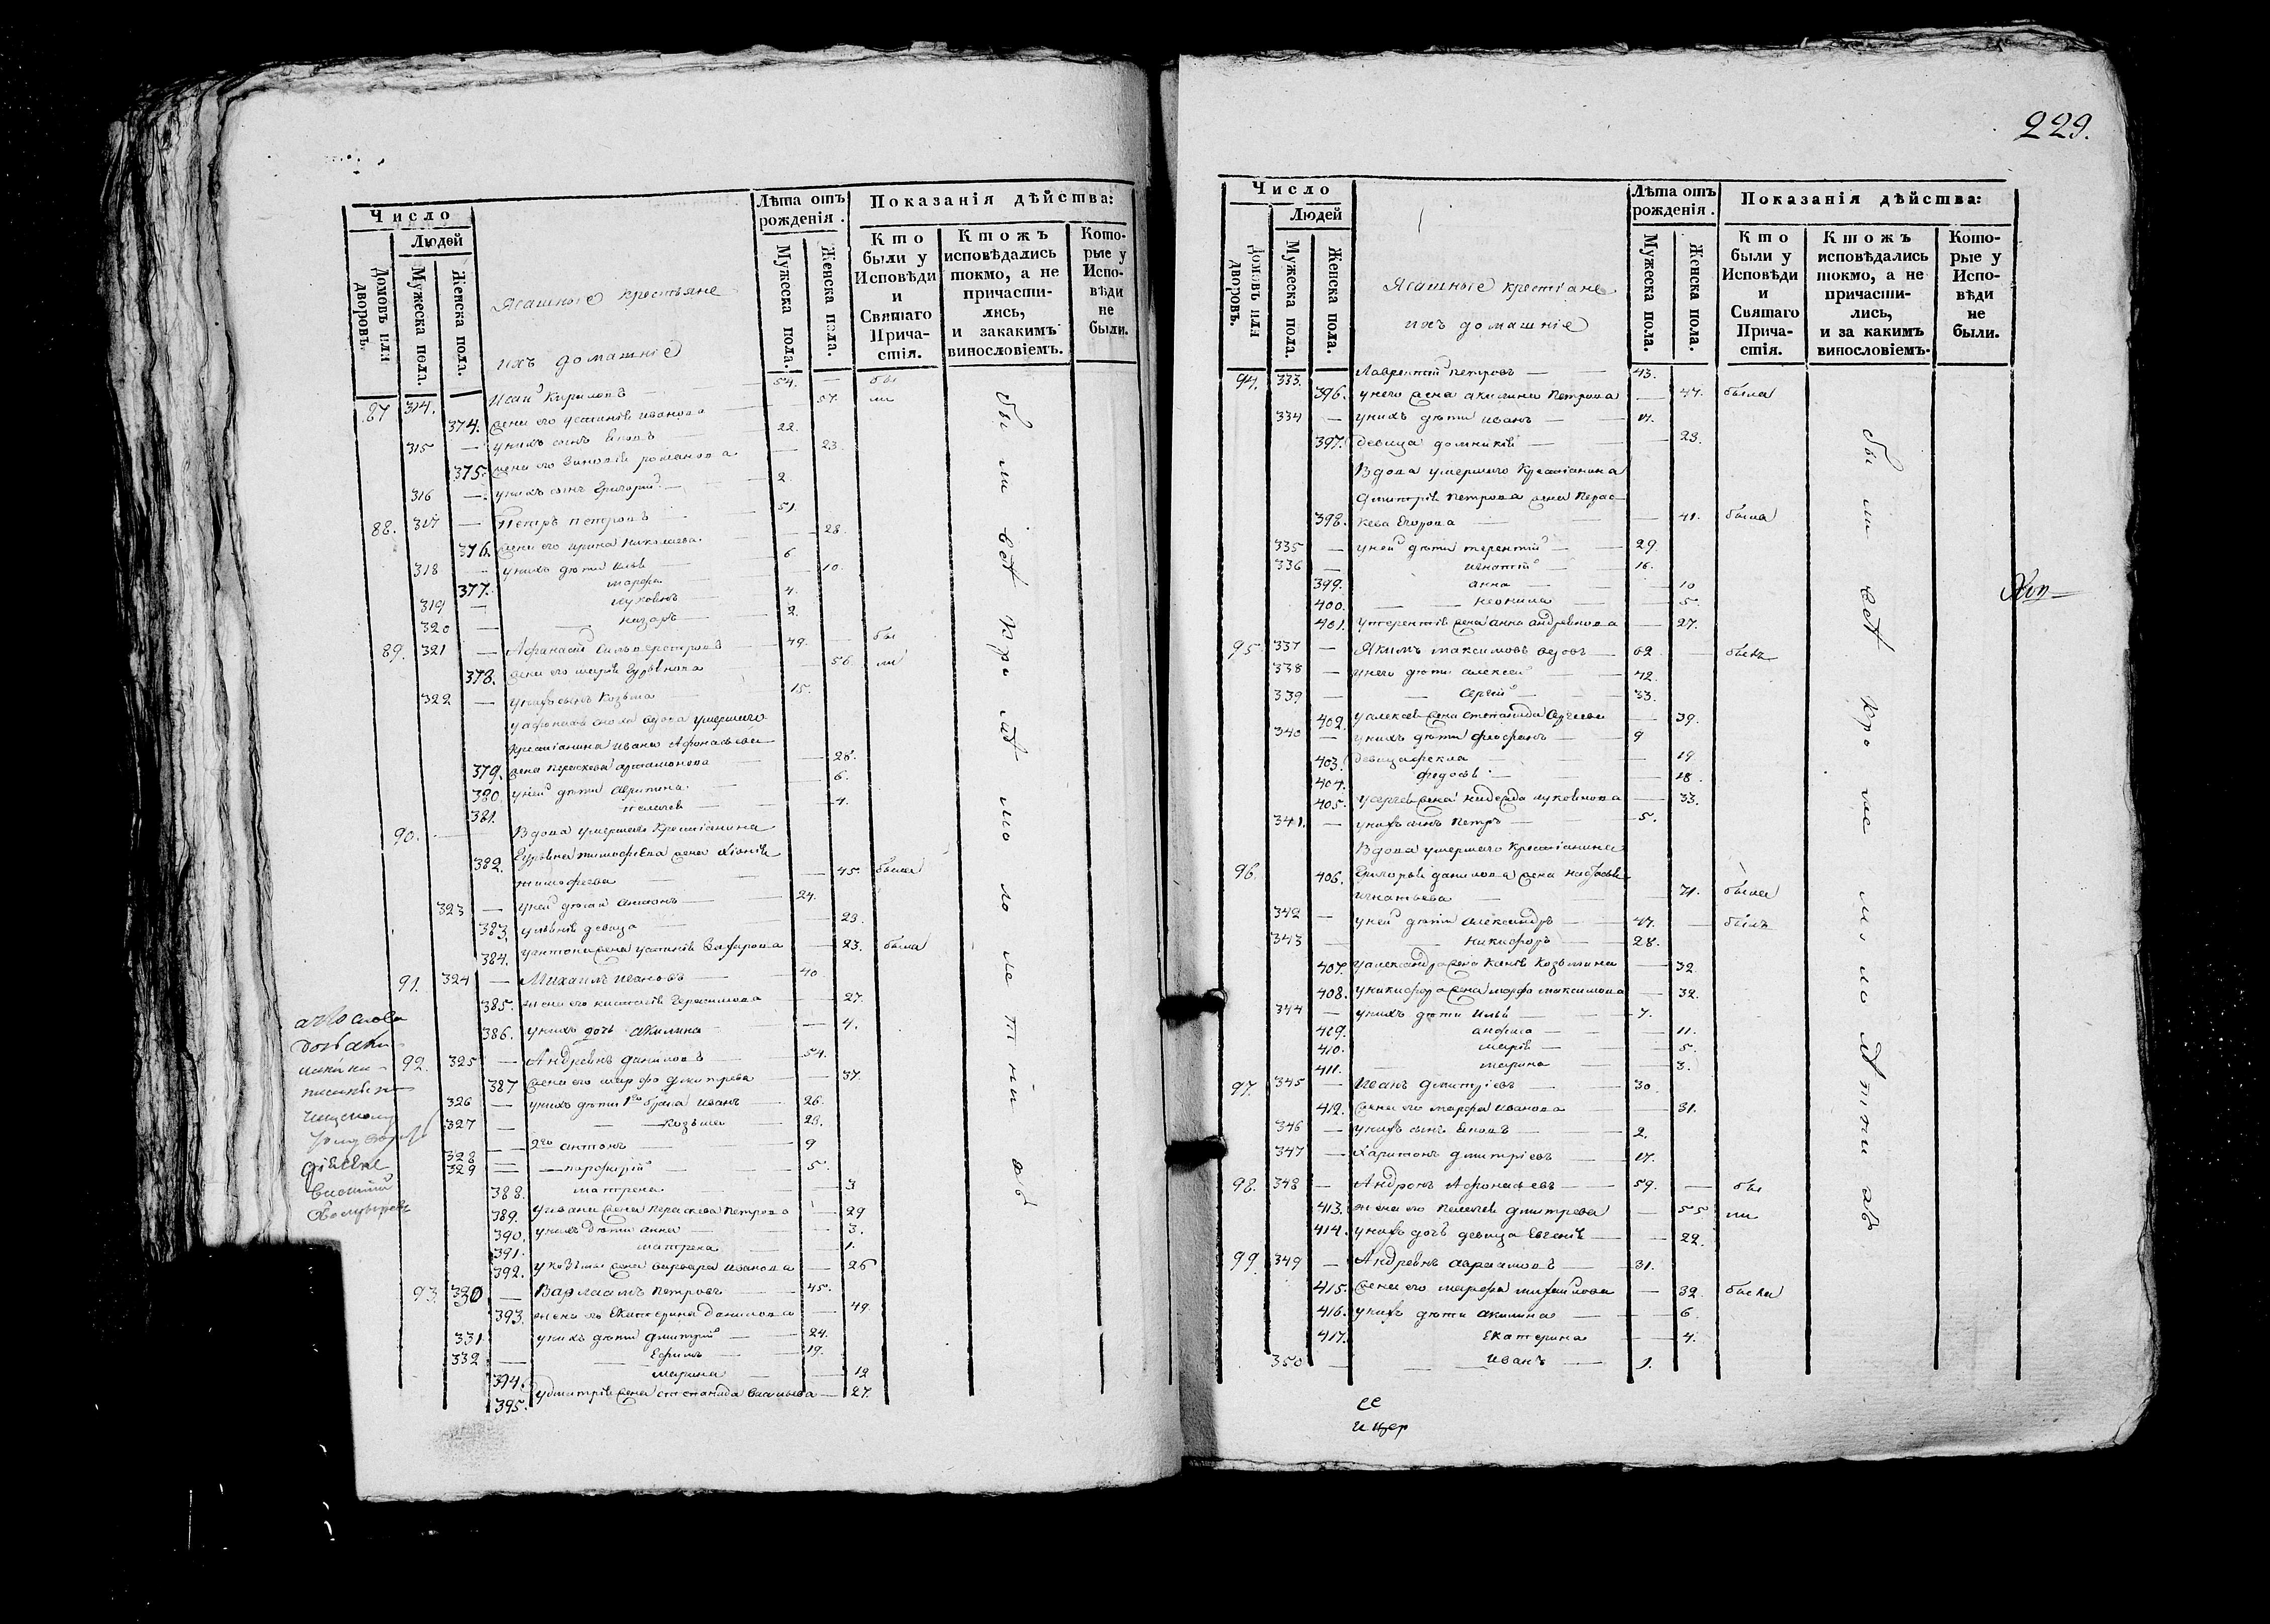 Число
Людей
Домовъ или дворовъ.
Мужеска пола.
Женска пола.
Ясашные крестьяне
ихъ домашніе
Лѣта отъ рожденія.
Мужеска пола.
Женска пола.
Показанія дѣйства:
Кто были у Исповѣди и Святаго Прича-стія.
Ктожъ исповѣдались токмо, а не причасти-лись, и закакимъ винословіемъ.
Кото-рые у Испо-вѣди не были.
87 314. Исай Кириловъ — 54. — бы
374. жена его устинія иванова — 57. ли
315 — унихъ сынъ 22.
375. жена его зиновія романова — 23.
316 — унихъ сынъ Григорій — 2.
88. 317 — Петръ петровъ — 51.
376. жена его ирина николаева — 28.
318 — унихъ дѣти илья — 6
377. марфа — 10.
319 — луковнъ — 4.
320 — назаръ — 2.
89. 321 — Афанасій Сильверстровъ — 49. — бы
378. жена его марія гурьянова — 56. ли
322 — унихъ сынъ Козьма — 15.
уафонасья сноха вдова умершаго
крестіанина ивана Афонасьева
379. жена параскева артамонова — 28.
380. уней дѣти — 6.
381. пелагея — 4.
90. — Вдова умершаго крестіанина
382. тимофеева жена хіонія
тимофеева — 45. была
323 — уней дѣти антонъ — 24.
383. уліянія девица — 23.
384. уантона жена устинія Захарова — 23. была
91. 324 — Михаилъ ивановъ — 40.
385. жена его Герасимова — 27.
386. унихъ дочь акилина — 4.
92. 325 — Андреянъ даниловъ — 54.
387 жена его марфа дмитрева — 37.
326 — унихъ дѣти 1го брака иванъ — 26.
327 — — козьма 23.
328 — — 2го антонъ — 9
329 — — парфирій — 5.
388. матрена — 3
389. уивана жена параскева петрова — 29
390. унихъ дѣти анна — 3.
391. матрена — 1.
392. укозьмы жена варвара иванова — 26
93. 330 — Варлаамъ петровъ — 45.
393. жена его Екатерина данилова — 49.
331 унихъ дѣти дмитрій — 24.
332 — Ефимъ — 19.
394. марина — 12
395. удмитрія жена степанида васильева — 27.
бы ли всѣ кро мѣ мо ло ле т ни хъ
229.
Число
Людей
Домовъ или дворовъ.
Мужеска пола.
Женска пола.
Ясашные крестіане
ихъ домашніе
Лѣта отъ рожденія.
Мужеска пола.
Женска пола.
Показанія дѣйства:
Кто были у Исповѣди и Святаго Прича-стія.
Ктожъ исповѣдались токмо, а не причасти-лись, и за какимъ винословіемъ.
Кото-рые у Испо-вѣди не были.
94. 333. Лаврентій петровъ — 43.
396. унего жена акилина Петрова — 47. была
334 — унихъ дѣти иванъ — 17.
397. девица домникія — 23.
Вдова умершаго Крестіанина
Дмитрія петрова жена Парас-
398. кева Егорова — 41. была
335 — уней дѣти терентій — 29.
336 — игнатій — 16.
399. анна — 10
400. — неонила — 5.
401. утерентія жена анна андреянова — 27.
95. 337 — Якимъ максимовъ вдовъ — 62 — былъ
338 — унего дѣти алексей — 42.
339 — Сергій — 33.
402. уалексея жена степанида Сергеева — 39.
340 — унихъ дѣти феофанъ — 9
403. девица фекла — 19
404. федосья — 18
405. усергея жена надежда луковнова — 33.
341. — унихъ сынъ петръ — 5.
Вдова умершаго крестіанина
96. 406. Григорья данилова жена настасья
игнатьева — 71. была
342 — уней дѣти александръ — 47. — былъ
343 — никифоръ — 28.
407. уалександра жена ксенія козьмина — 32
408. уникифора жена марфа максимова — 32.
344 — унихъ дѣти илья — 7.
409. анфиса — 11.
410. марія — 5.
411. марина — 3.
97. 345 — Иванъ дмитріевъ — 30.
412. жена его марфа иванова — 31.
346 — унихъ сынъ — 2.
347 — Харитонъ дмитріевъ — 17.
98. 348 — Андронъ Афонасьевъ — 59. — бы
413. жена его пелагея дмитрева — 55 ли
414. унихъ дочь девица Евгенія — 22.
99. 349 — Андреянъ авраамовъ — 31.
415. жена его марфа михайлова — 32. была
416. унихъ дѣти акилина — 6
417. Екатерина — 4.
350 — иванъ — 1.
бы ли всѣ кро ме ма ло лѣ т ни хъ